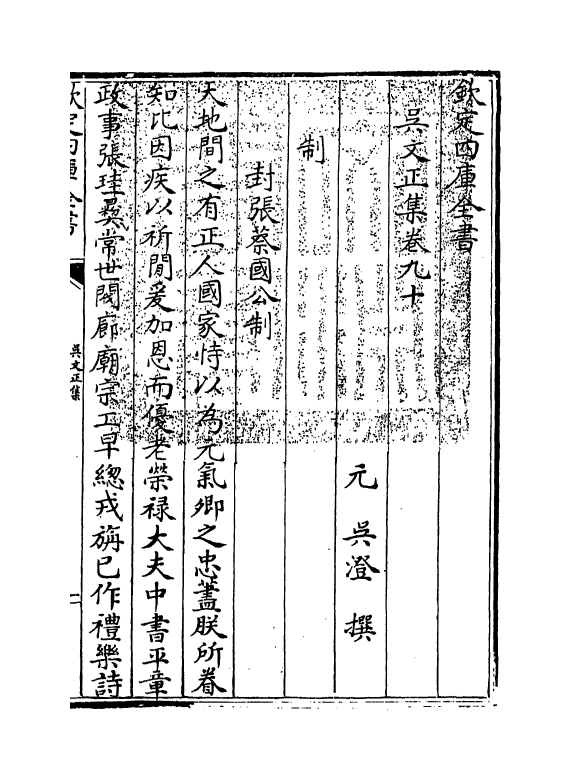 欽定四庫全書
吳文正集卷九十
元 吳澄 撰
制
封張蔡國公制
天地間之有正人國家恃以為元氣卿之忠藎朕所眷
知比因疾以祈閒爰加恩而優老榮禄大夫中書平章
政事張珪彞常世閥廊廟宗工早總戎旃已作禮樂詩
欽定四庫全書
吳文正集
一